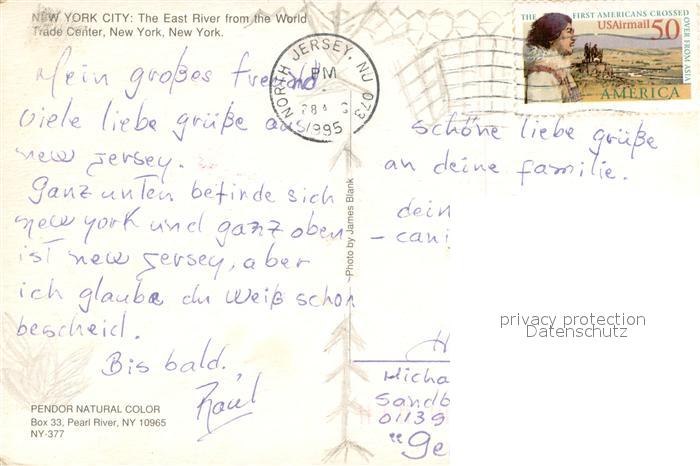 NEW YORK CITY: The East River from the World
Trade Center, New York, New York.
Mein großes freund
Viele liebe grüße aus
new Jersey.
Ganz unten befinde sich
new york und ganz oben
ist new Jersey, aber
ich glaube du weiß schon
bescheid.
Bis bald,
Raúl
PENDOR NATURAL COLOR
Box 33, Pearl River, NY 10965
NY-377
Photo by James Blank
NORTH JERSEY, NJ 073
PM
1995
THE FIRST AMERICANS CROSSED OVER FROM ASIA
USAirmail 50
AMERICA
schöne liebe grüße
an deine familie.
dein
- cani
privacy protection
Datenschutz
H
Micha
Sandb
01139
"Ge